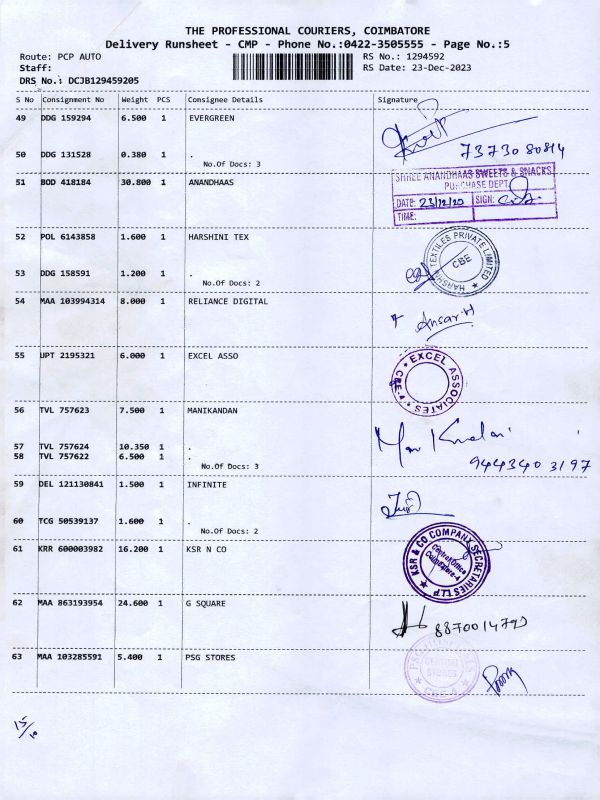 THE PROFESSIONAL COURIERS, COIMBATORE
Delivery Runsheet - CMP - Phone No.:0422-3505555 - Page No.:5
Route: PCP AUTO
RS No.: 1294592
Staff:
RS Date: 23-Dec-2023
DRS No.: DCJB129459205
S No Consignment No Weight PCS Consignee Details Signature
49 DDG 159294 6.500 1 EVERGREEN
50 DDG 131528 0.380 1 .
7373080814
No.Of Docs: 3
SHREE ANANDHAAS SWEETS & SNACKS
51 BOD 418184 30.800 1 ANANDHAAS
PURCHASE DEPT.
DATE: 23/12/20 SIGN:
TIME:
52 POL 6143858 1.600 1 HARSHINI TEX
TEXTILES PRIVATE LIMITED
CBE
53 DDG 158591 1.200 1 .
No.Of Docs: 2
54 MAA 103994314 8.000 1 RELIANCE DIGITAL
Ansar.H
55 UPT 2195321 6.000 1 EXCEL ASSO
EXCEL ASSOCIATES
CBE-4
56 TVL 757623 7.500 1 MANIKANDAN
57 TVL 757624 10.350 1 .
58 TVL 757622 6.500 1 .
9443403197
No.Of Docs: 3
59 DEL 121130841 1.500 1 INFINITE
60 TCG 50539137 1.600 1 .
No.Of Docs: 2
61 KRR 600003982 16.200 1 KSR N CO
KSR & CO COMPANY SECRETARIES LLP
Coimbatore-4
62 MAA 863193954 24.600 1 G SQUARE
8870014793
63 MAA 103285591 5.400 1 PSG STORES
CENTRAL
STORES
15/10